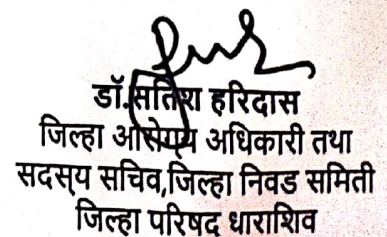 डॉ.सतिश हरिदास
जिल्हा आरोग्य अधिकारी तथा
सदस्य सचिव,जिल्हा निवड समिती
जिल्हा परिषद धाराशिव